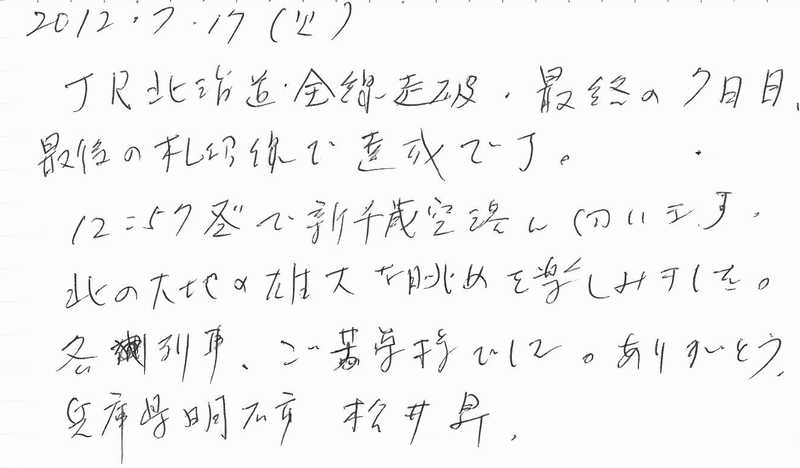 2012.7.17(火)
JR北海道・全線走破・最終の7日目、
最後の札沼線で達成です。
12:57発で新千歳空港へ向います。
北の大地の雄大な眺めを楽しみました。
各 列車、ご苦労様でした。ありがとう。
兵庫県明石市 松井昇.